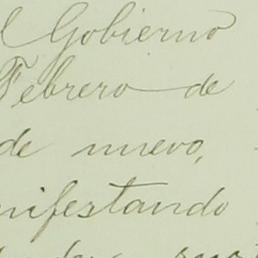 l Gobierno
Febrero de
de nuevo,
nifestando